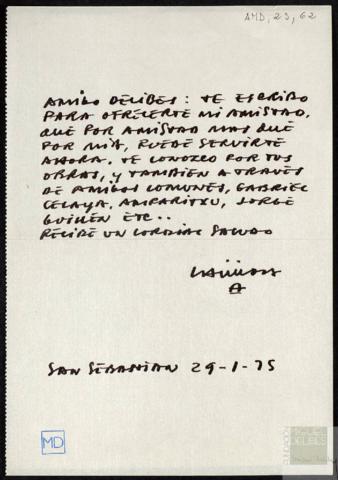 AMD, 23, 62
AMIGO DELIBES: TE ESCRIBO
PARA OFRECERTE MI AMISTAD,
QUE POR AMISTAD MAS QUE
POR MIA, PUEDE SERVIRTE
AHORA. TE CONOZCO POR TUS
OBRAS, Y TAMBIEN A TRAVÉS
DE AMIGOS COMUNES, GABRIEL
CELAYA, AMPARITXU, JORGE
GUILLÉN ETC..
RECIBE UN CORDIAL SALUDO
SAN SEBASTIAN 29-1-75
MD
FUNDACIÓN
MIGUEL
DELIBES